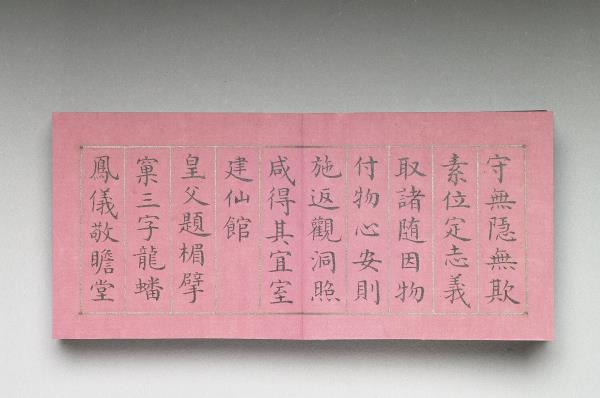 守無隱無欺
素位定志義
取諸随因物
付物心安則
施返觀洞照
咸得其宜室
建仙館
皇父題楣擘
窠三字龍蟠
鳳儀敬瞻堂